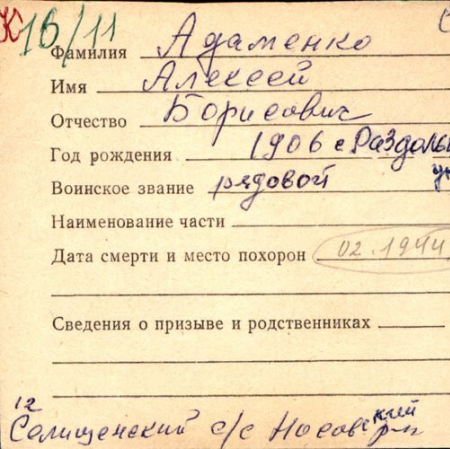 К 16/11
Фамилия Адаменко
Имя Алексей
Отчество Борисович
Год рождения 1906 с Раздоль
Воинское звание рядовой
Наименование части
Дата смерти и место похорон 02.1944
Сведения о призыве и родственниках
12
Селищенский с/с Носовский р-н